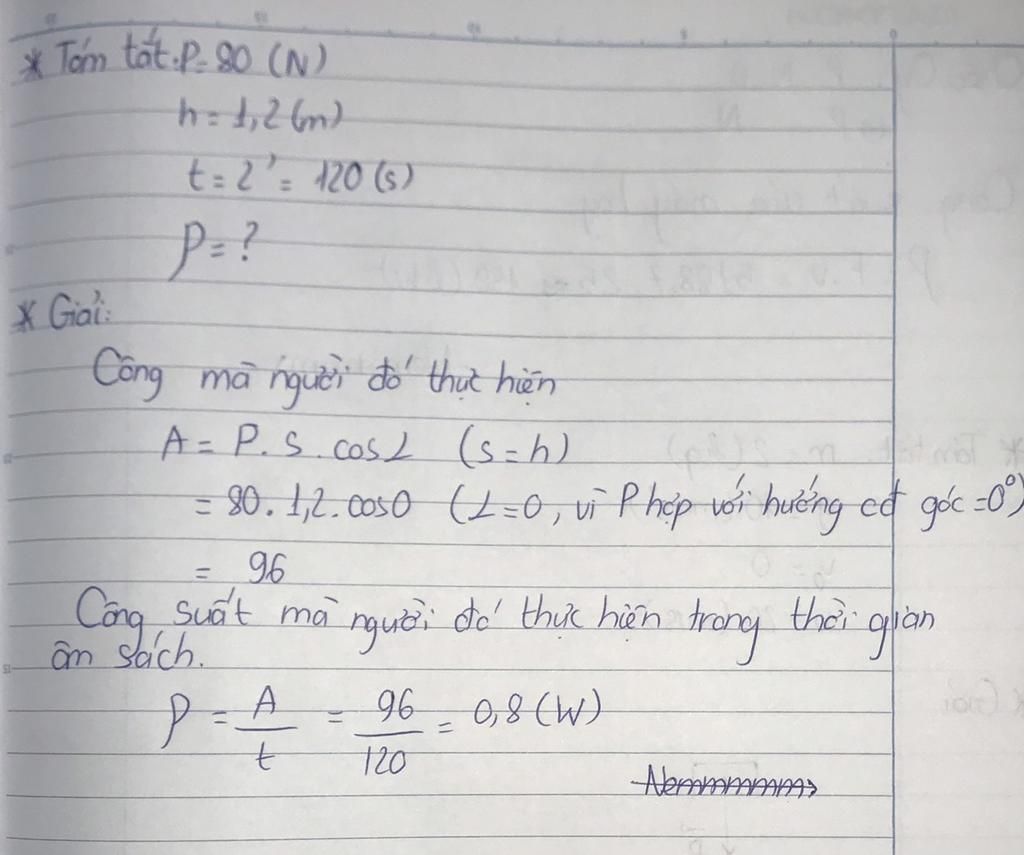 * Tóm tắt: P = 80 (N)
h = 1,2 (m)
t = 2' = 120 (s)
P = ?
* Giải:
Công mà người đó thực hiện
A = P. S. cosL (s = h)
= 80. 1,2. cos0 (L = 0, vì P hợp với hướng cđ góc = 0°)
= 96
Công suất mà người đó thực hiện trong thời gian
ôm sách.
P = A/t = 96/120 = 0,8 (W)